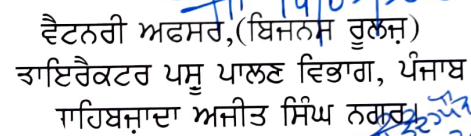 ਵੈਟਨਰੀ ਅਫਸਰ,(ਬਿਜਨਸ ਰੂਲਜ਼)
ਡਾਇਰੈਕਟਰ ਪਸ਼ੂ ਪਾਲਣ ਵਿਭਾਗ, ਪੰਜਾਬ
ਸਾਹਿਬਜ਼ਾਦਾ ਅਜੀਤ ਸਿੰਘ ਨਗਰ।